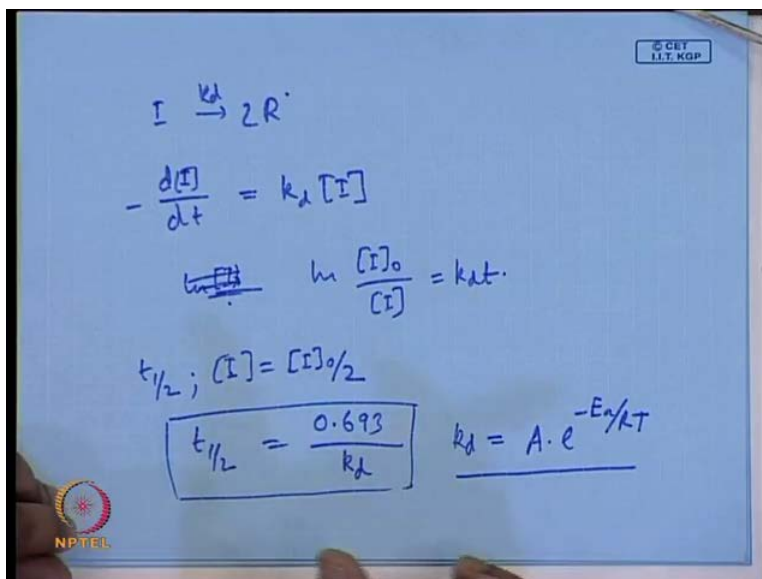 © CET
I.I.T. KGP
I \xrightarrow{k_d} 2R^•
- d[I]/dt = k_d [I]
ln [I]_0/[I] = k_d t.
t_{1/2} ; [I] = [I]_0/2
t_{1/2} = 0.693/k_d    k_d = A. e^{-Ea/RT}
NPTEL